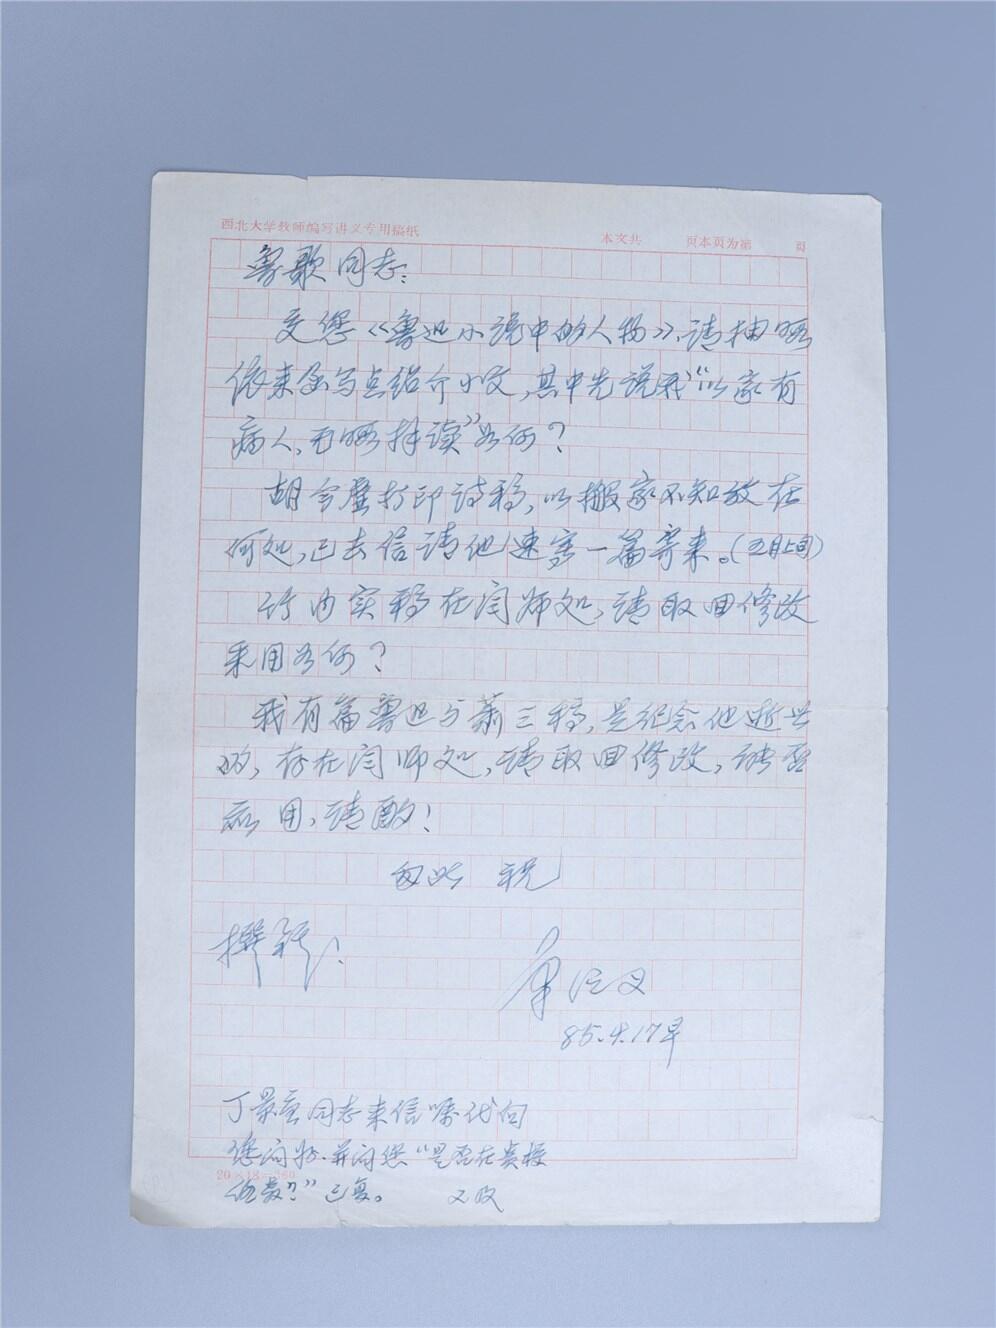 西北大学教师编写讲义专用稿纸
本文共 页本页为第 页
鲁歌同志:
交您《鲁迅小说中的人物》,请抽暇
依来函写点绍介小文,其中先说我“以家有
病人,无暇拜读”如何?
胡今虚打印诗稿,以搬家不知放在
何处,已去信请他速寄一篇寄来。(五月上旬)
许内实稿在阎师处,请取回修改
采用如何?
我有篇鲁迅与萧三稿,是纪念他逝世
的,存在阎师处,请取回修改,能否
采用,请酌!
匆此 祝
撰祺!
单演义
85.4.17早
丁景唐同志来信嘱代向
您问好.并问您“是否在负授
任教?”已复。 又及
20×18=360